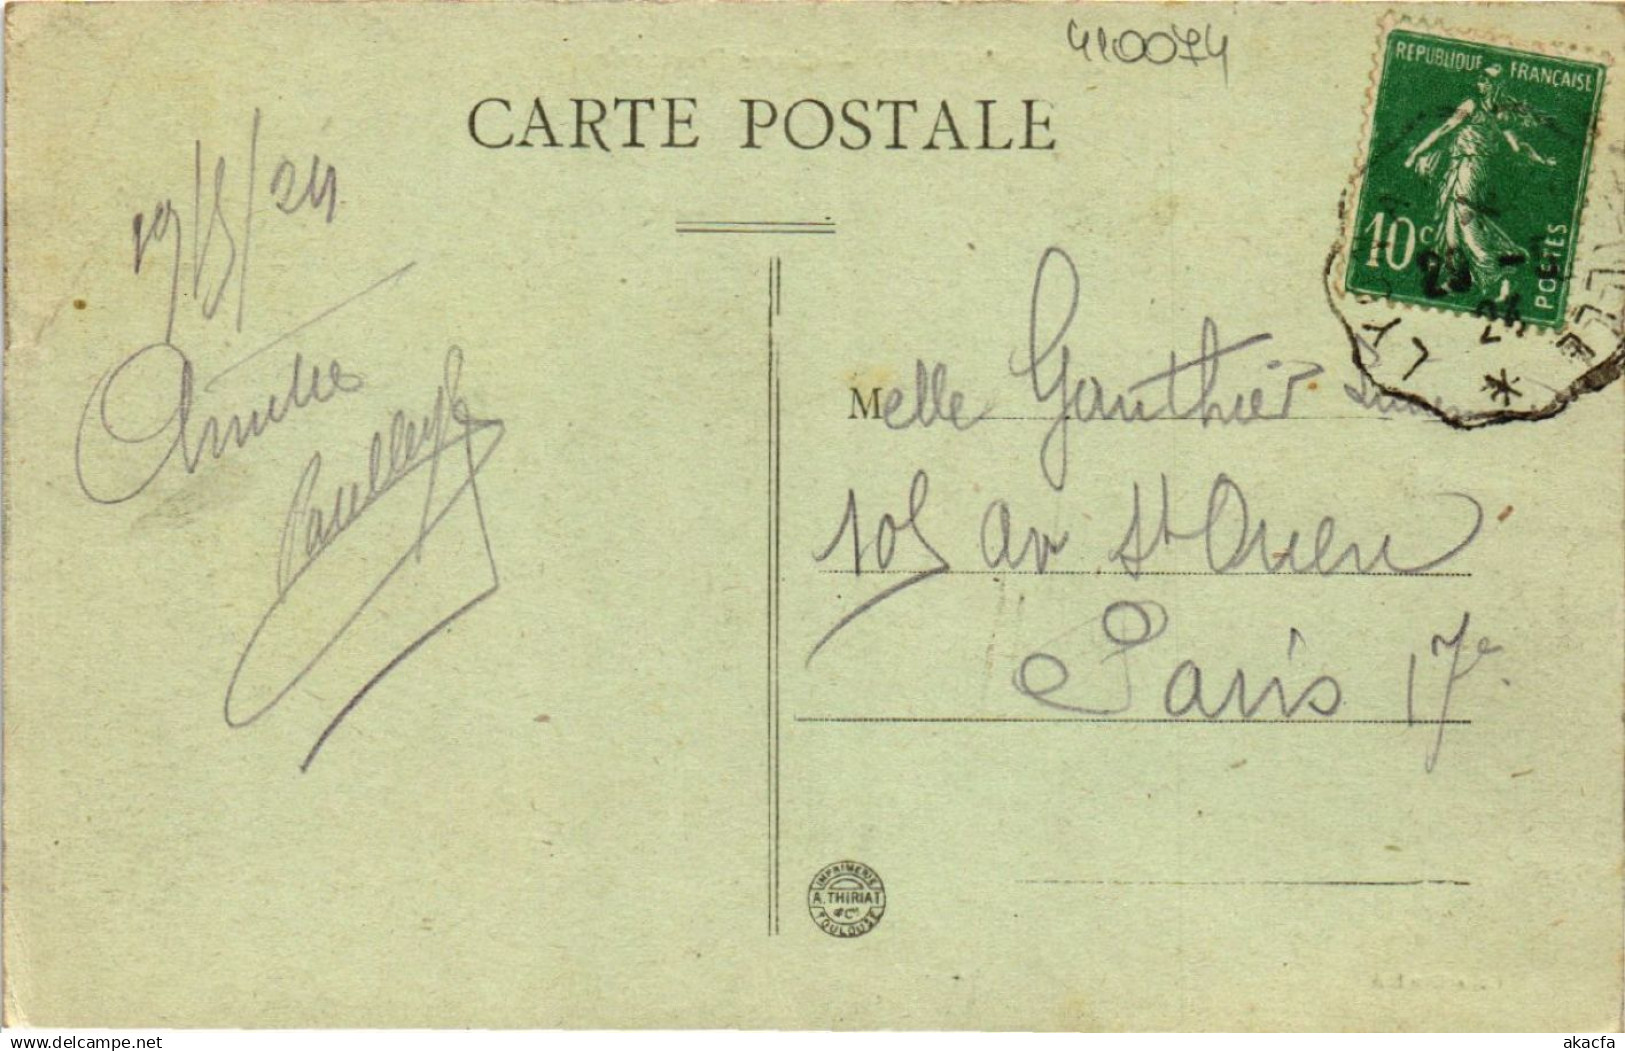 410074
CARTE POSTALE
REPUBLIQUE FRANÇAISE
10c
POSTES
19/5/24
Amitiés
Melle Gauthier
105 av St Ouen
Paris 17e
LYS
24
IMPRIMERIE
A. THIRIAT
& Cie
TOULOUSE
delcampe.net
akacfa